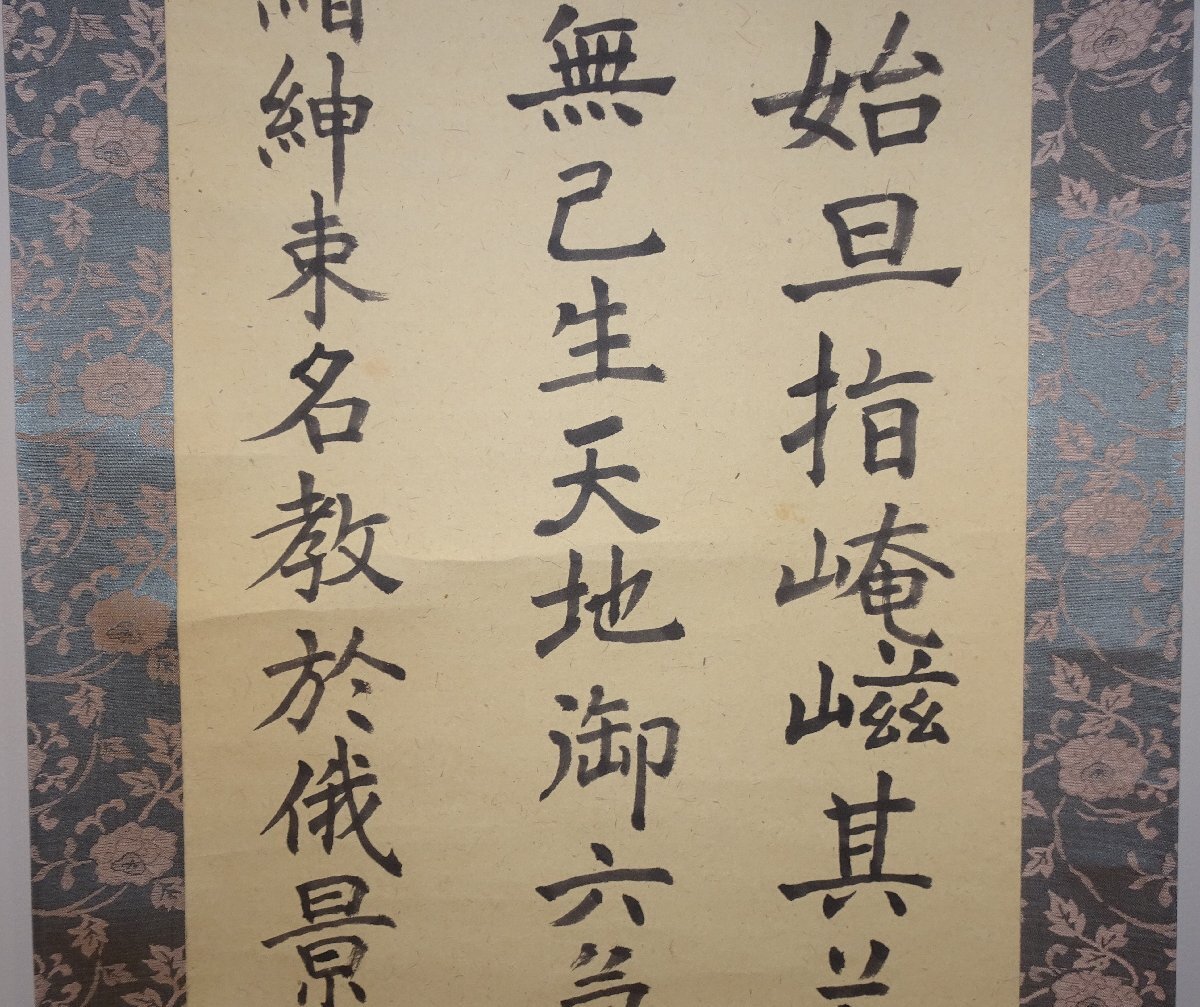 始旦指崦嵫其
無己生天地御六氣
紳束名教於俄景